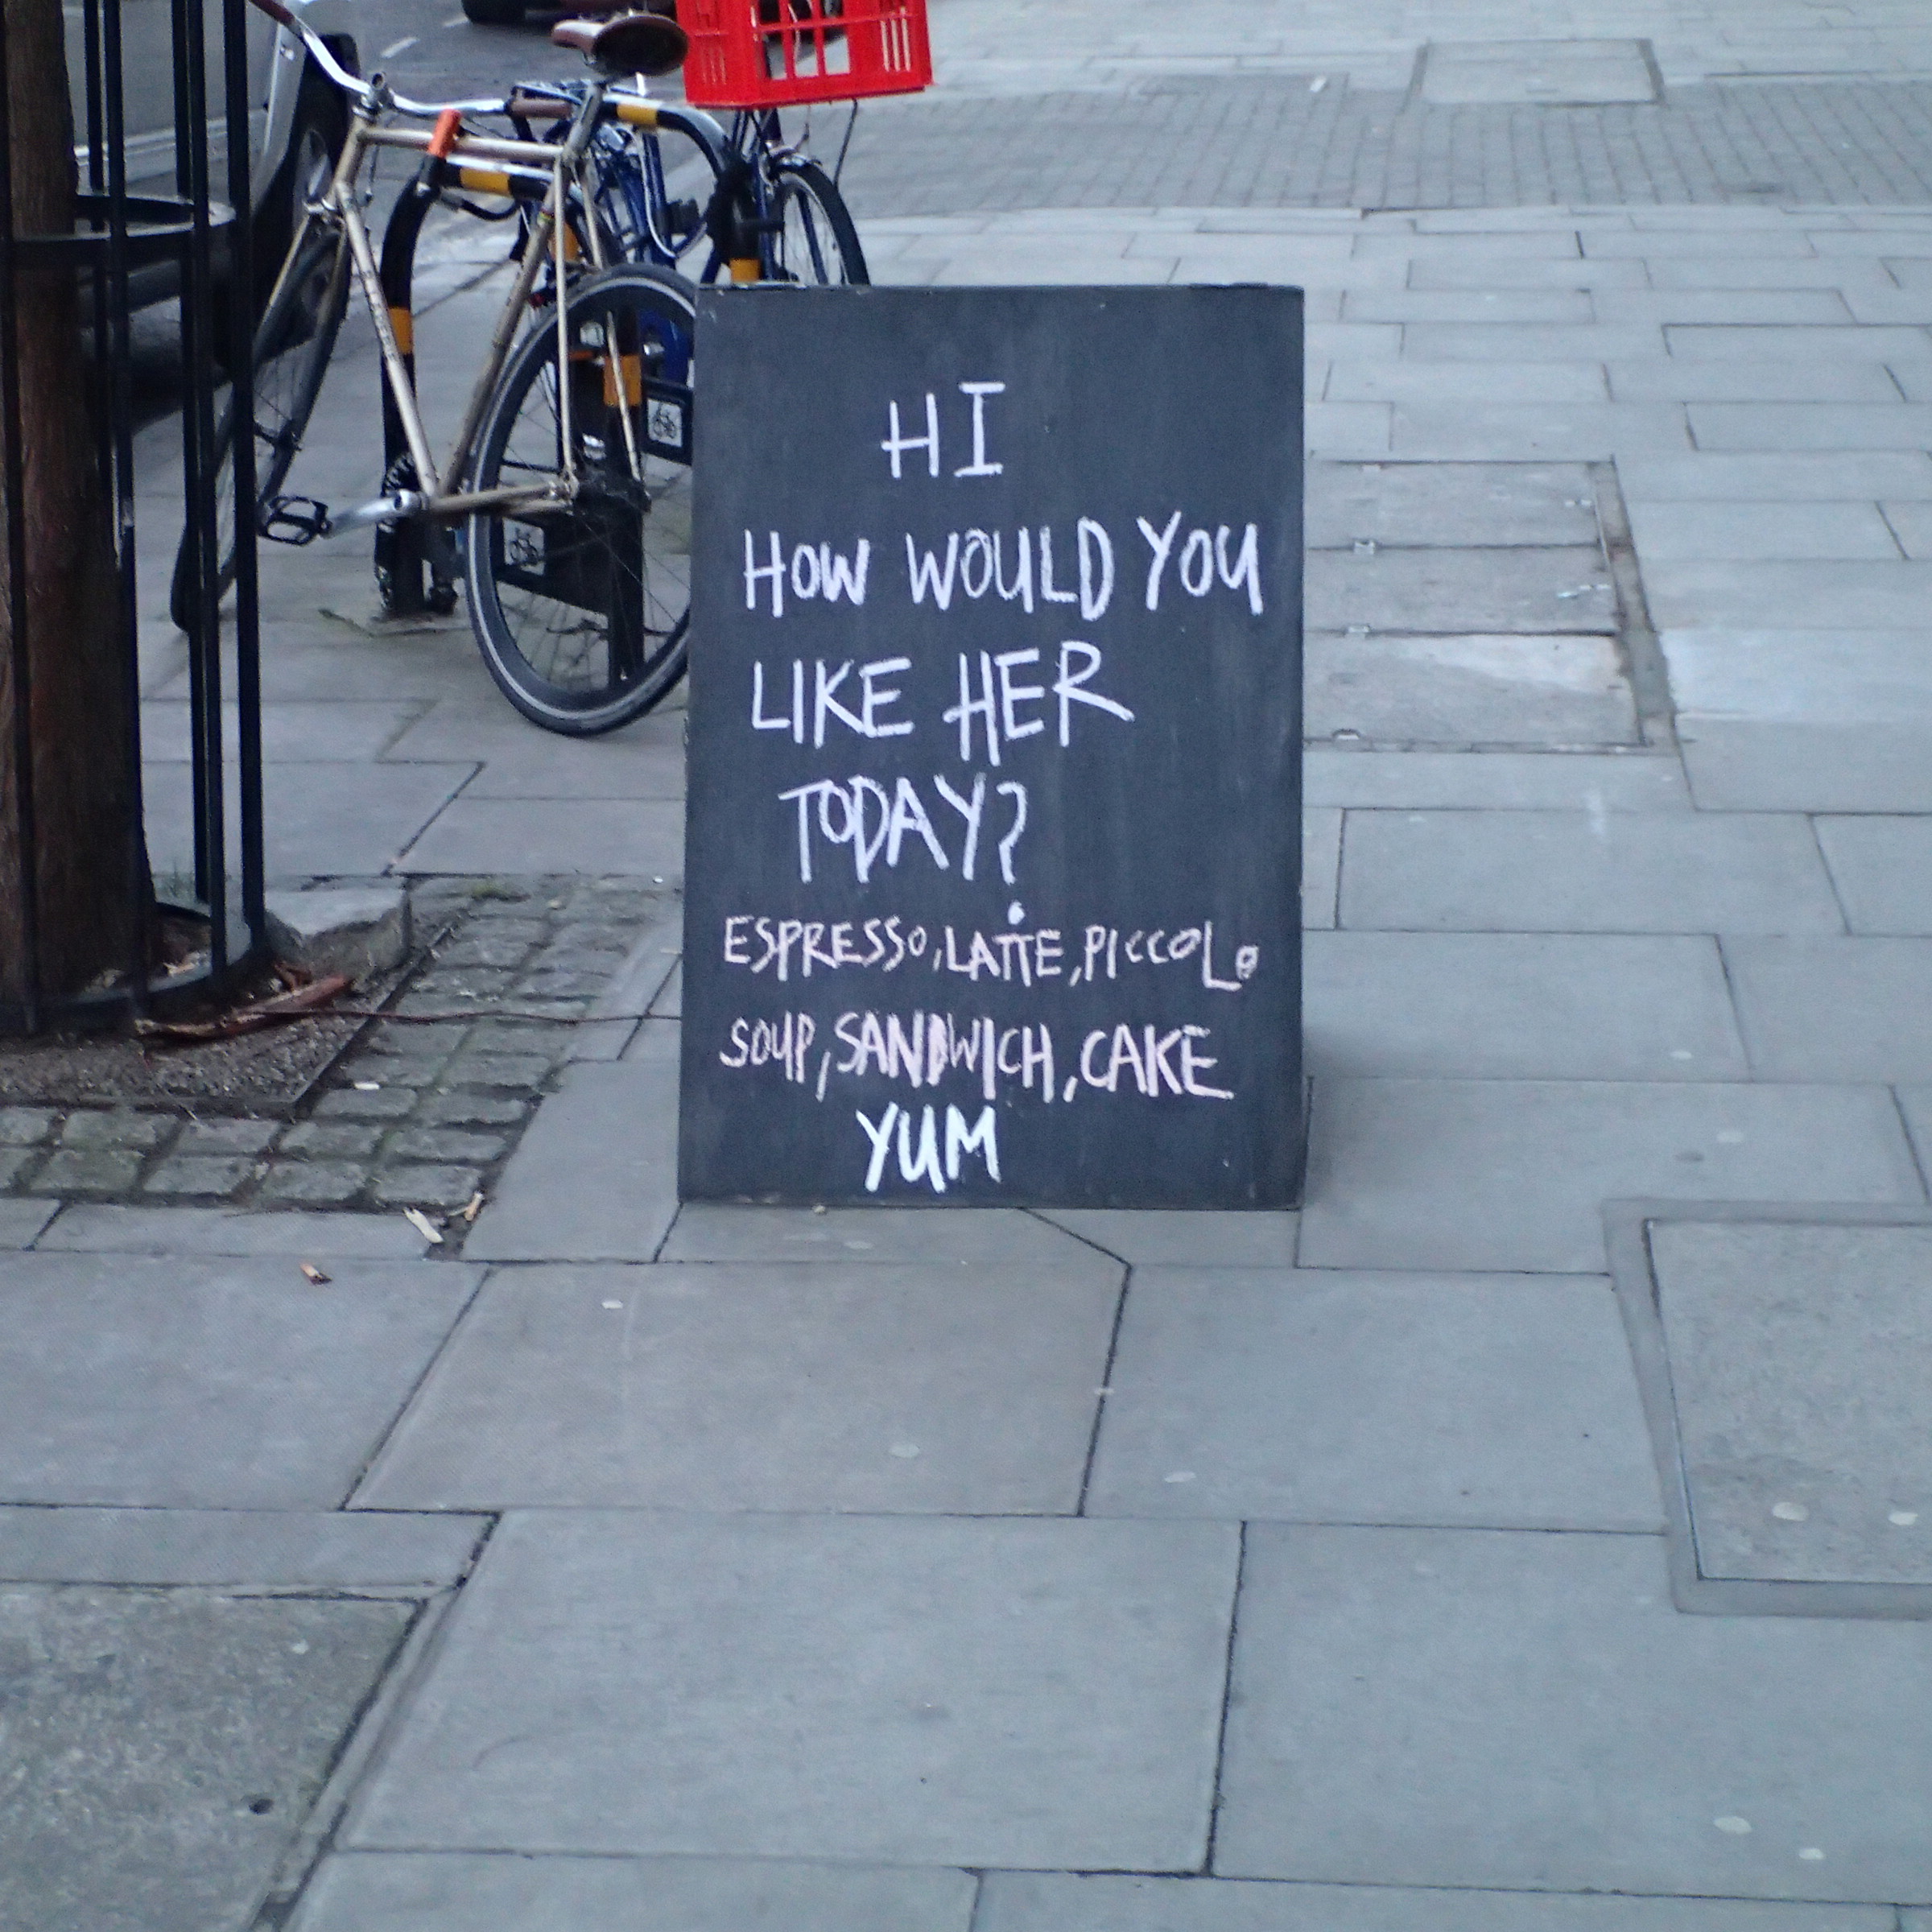 HI
HOW WOULD YOU
LIKE HER
TODAY?
ESPRESSO, LATTE, PICCOLO
SOUP, SANDWICH, CAKE
YUM